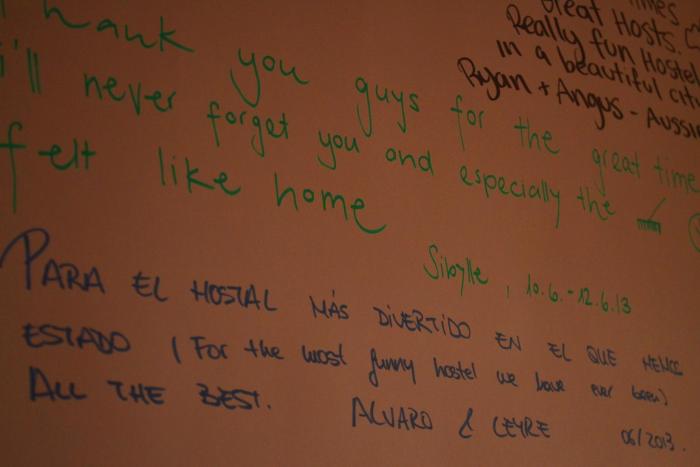 Great Hosts.
Really fun Hostel
in a beautiful
Ryan + Angus - Aussi
Thank you guys for the great time
I'll never forget you and especially the
felt like home
Sibylle, 10.6.-12.6.13
PARA EL HOSTAL MÁS DIVERTIDO EN EL QUE HEMOS
ESTADO (For the most funny hostel we have ever been)
ALL THE BEST. ALVARO & LEYRE 06/2013.